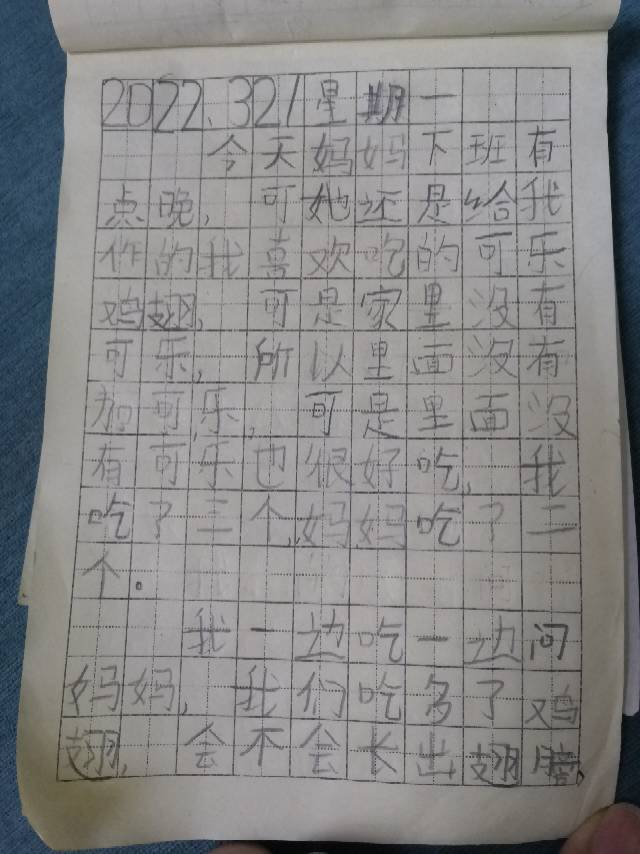 2022.321星期一
今天妈妈下班有
点晚，可她还是给我
作的我喜欢吃的可乐
鸡翅，可是家里没有
可乐，所以里面没有
加可乐，可是里面没
有可乐也很好吃，我
吃了三个，妈妈吃了二
个。
我一边吃一边问
妈妈，我们吃多了鸡
翅，会不会长出翅膀。